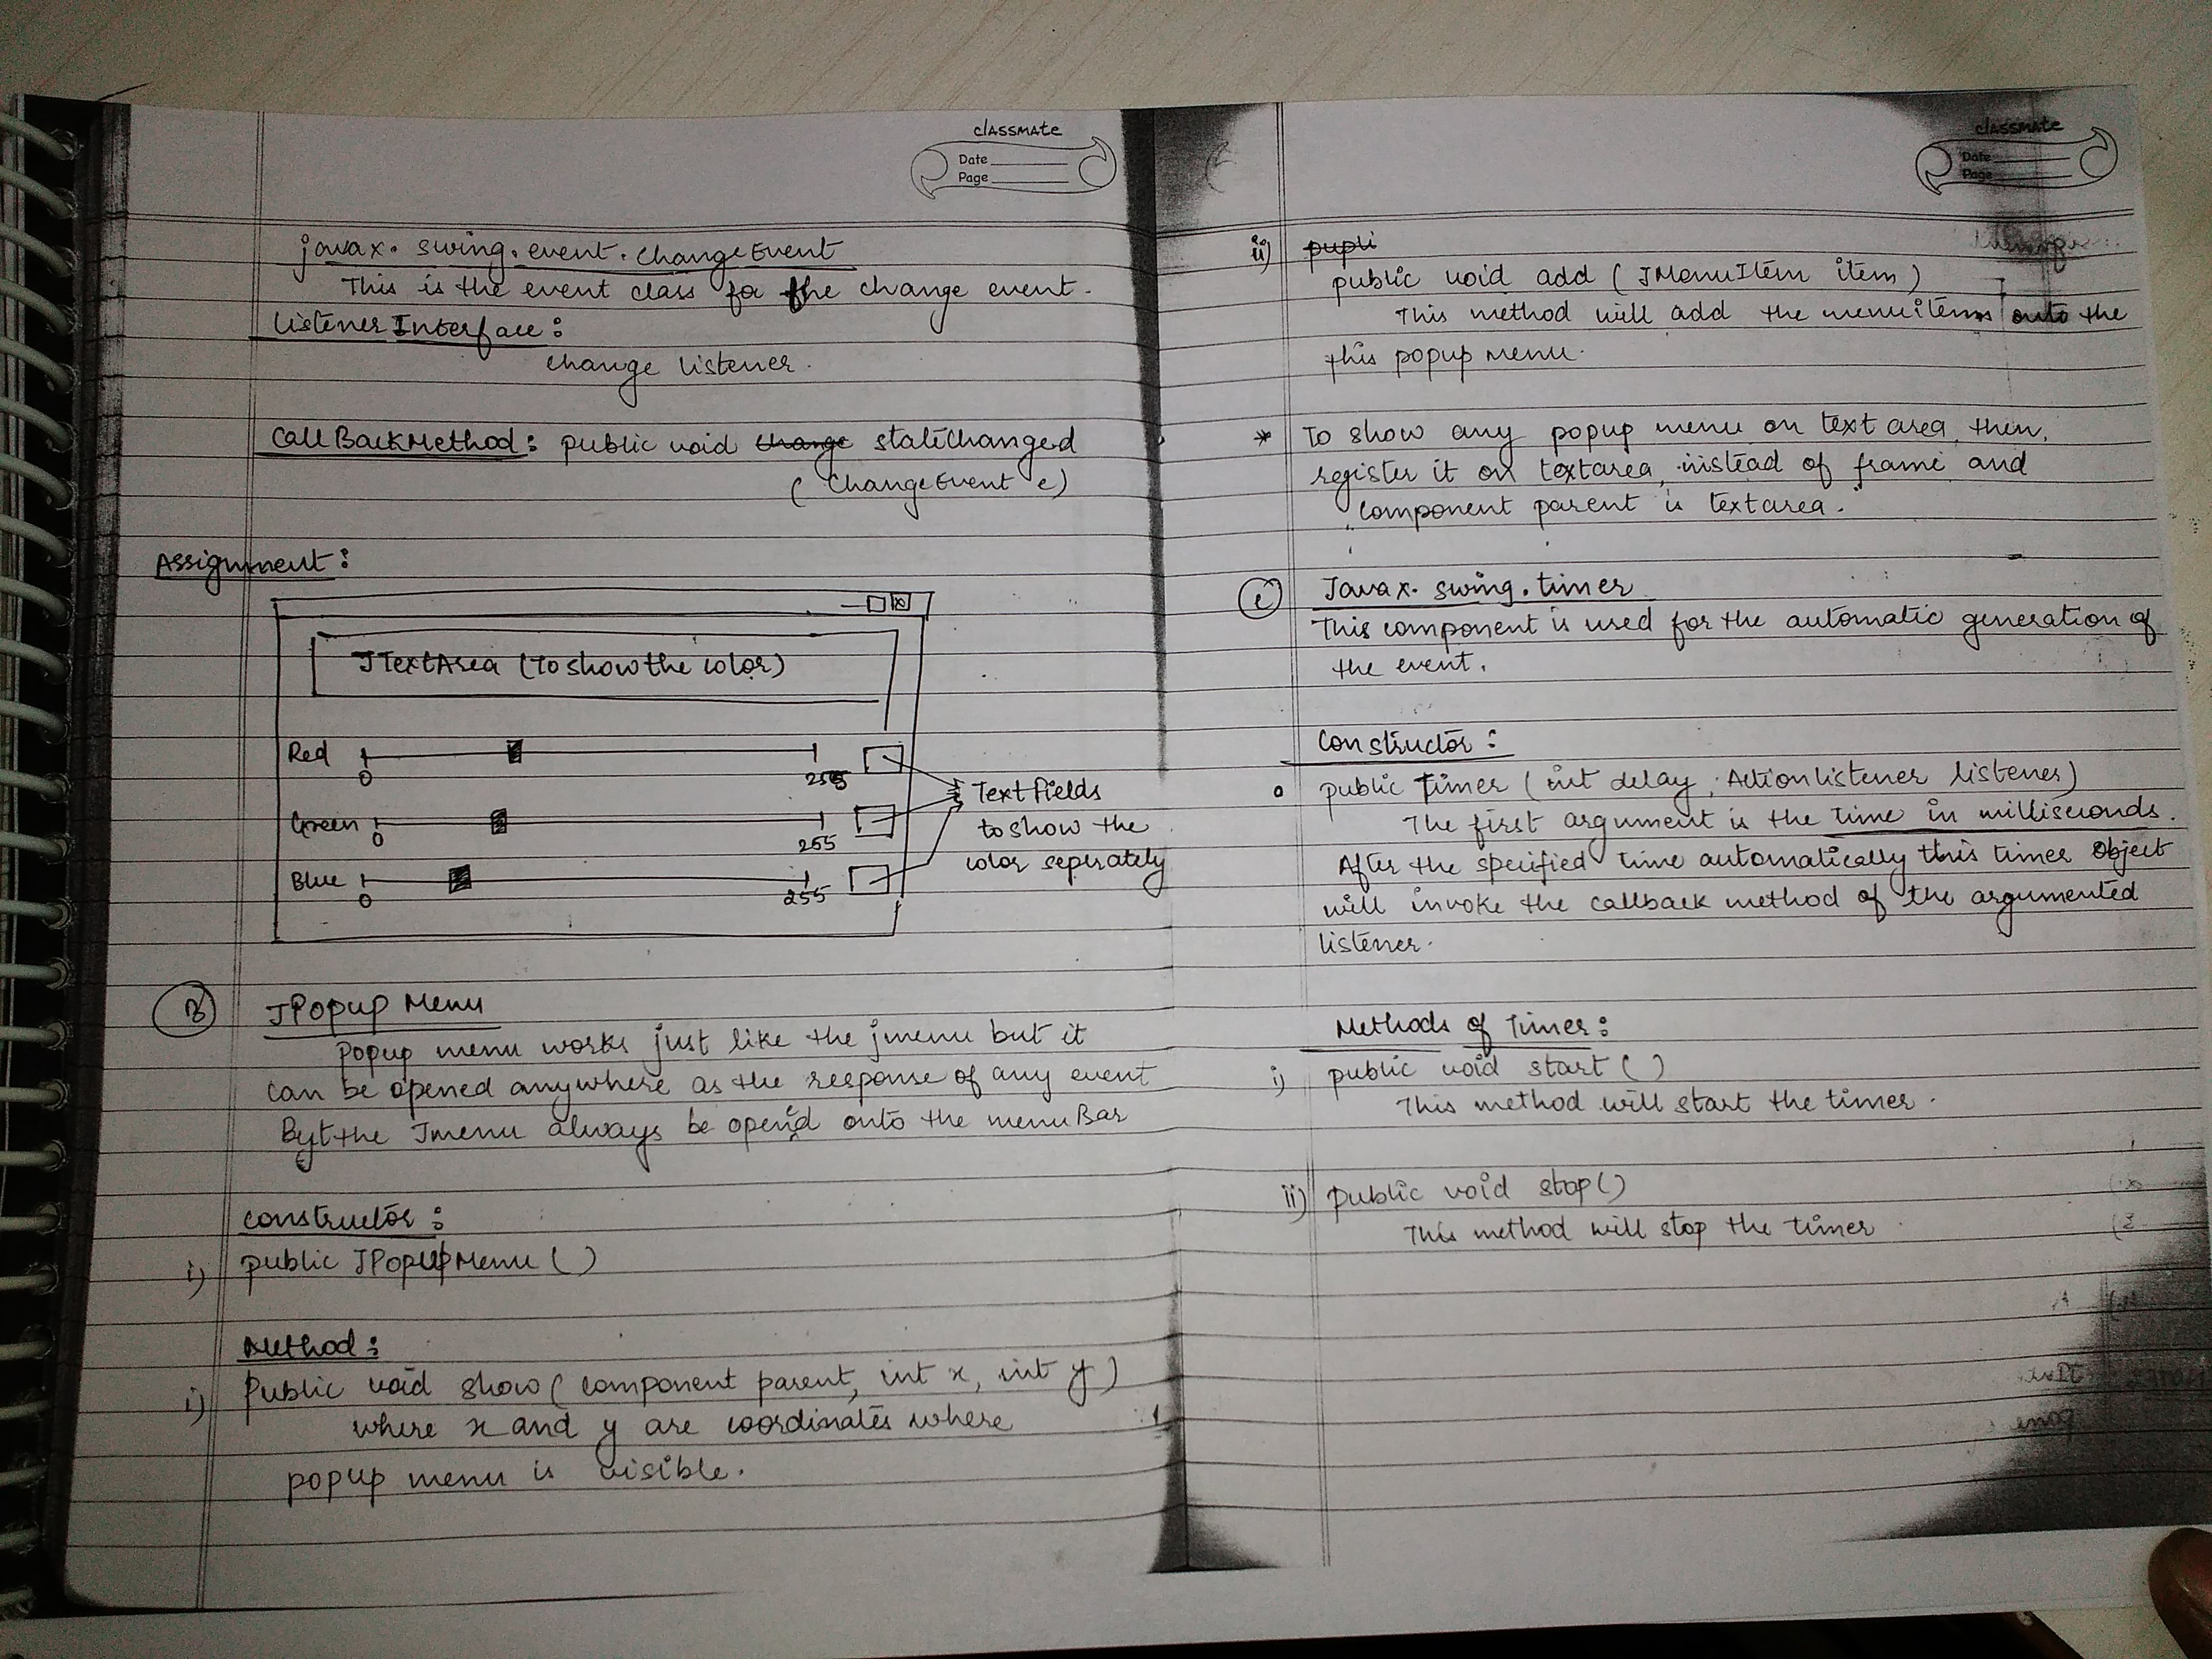 classmate
Date
Page
javax. swing. event. ChangeEvent
This is the event class for the change event.
Listener Interface:
change listener.
CallBackMethod: public void change stateChanged
( ChangeEvent e)
Assignment:
JTextArea (To show the color)
Red
0
255
Green
0
255
Blue
0
255
Textfields
to show the
color seperately
B
JPopup Menu
Popup menu works just like the jmenu but it
can be opened anywhere as the response of any event
But the Jmenu always be opened onto the menuBar
Constructor:
i) public JPopupMenu ( )
Method:
i) Public void show ( component parent, int x, int y )
where x and y are coordinates where
popup menu is visible.
classmate
Date
Page
ii) pupli
public void add ( JMenuItem item )
This method will add the menuitems onto the
this popup menu.
* To show any popup menu on text area, then,
register it on textarea, instead of frame and
component parent is textarea.
c
Javax. swing. timer
This component is used for the automatic generation of
the event.
Constructor:
public Timer ( int delay, ActionListener listener)
The first argument is the time in milliseconds.
After the specified time automatically this timer object
will invoke the callback method of the argumented
listener.
Methods of Timer:
i) public void start ( )
This method will start the timer.
ii) Public void stop()
This method will stop the timer